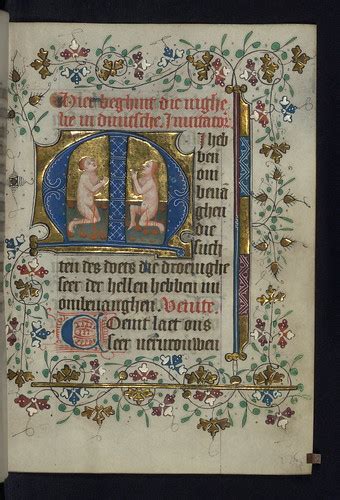 Hier beghint die vighe
lie in duutsche. Inuitator.
Mi heb
ben
om
beuā
ghen
die
such
ten des doets die droeuighe
seer der hellen hebben mi
ombeuanghen. Venite.
Coemt laet ons
seer verurouwen